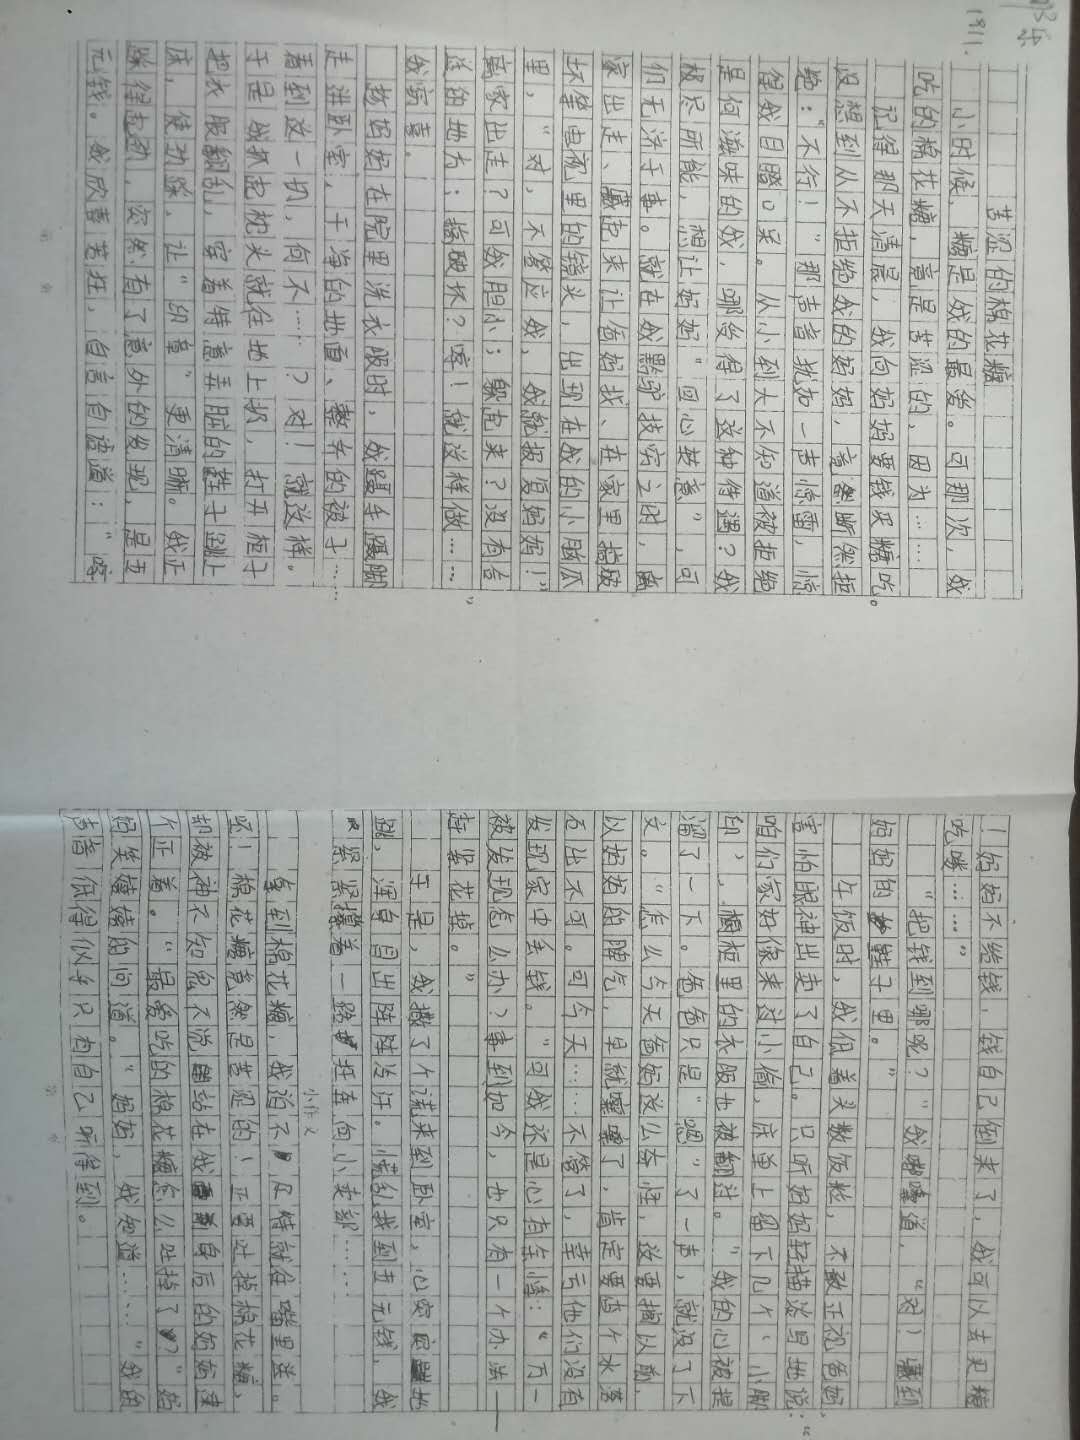 邓乐
1811.
苦涩的棉花糖
小时候，糖是我的最爱。可那次，我
吃的棉花糖，竟是苦涩的，因为……
记得那天清晨，我向妈妈要钱买糖吃。
没想到从不拒绝我的妈妈，竟断然拒
绝：“不行！”那声音犹如一声惊雷，惊
得我目瞪口呆。从小到大不知道被拒绝
是何滋味的我，哪受得了这种待遇？我
极尽所能，想让妈妈“回心转意”，可
们无济于事。就在我黔驴技穷之时，离
家出走、藏起来让爸妈找、在家里搞破
坏等电视里的镜头，出现在我的小脑瓜
里，“对，不答应我，我就报复妈妈！”
离家出走？可我胆小；躲起来？没有合
适的地方；搞破坏？嘿！就这样做……”
我窃喜。
趁妈妈在院里洗衣服时，我蹑手蹑脚
走进卧室，干净的地面、整齐的被子……
看到这一切，何不……？对！就这样。
于是我抓起枕头就往地上扔，打开柜子
把衣服翻乱，穿着特意弄脏的鞋子跳上
床，使劲踩，让“印章”更清晰。我正
踩得起劲，突然有了意外的发现，是五
元钱。我欣喜若狂，自言自语道：“嘿
！妈妈不给钱，钱自己倒来了，我可以去买糖
吃喽……”
“把钱到哪呢？”我嘟囔道，“对）藏到
妈妈的鞋子里。”
午饭时，我低着头数饭粒，不敢正视爸妈，
害怕眼神出卖了自己。只听妈妈轻描淡写地说：“
咱们家好像来过小偷，床单上留下几个‘小脚
印’，橱柜里的衣服也被翻过。”我的心被提
溜了一下。爸爸只是“嗯”了一声，就没了下
文。“怎么今天爸妈这么奇怪，这要搁以前，
以妈妈的脾气，早就嚷嚷了，肯定要查个水落
石出不可。可今天……不管了，幸亏他们没有
发现家中丢钱。”可我还是心有余悸：“万一
被发现怎么办？事到如今，也只有一个办法——
赶紧花掉。”
于是，我撒了个谎来到卧室，心突突地
跳，浑身冒出阵阵冷汗。慌乱找到五元钱，我
紧紧攥着一路狂奔向小卖部……
小作文
拿到棉花糖，我迫不及待就往嘴里送。
呸！棉花糖竟然是苦涩的！正要吐掉棉花糖，
却被神不知鬼不觉站在我身后的妈妈逮
个正着。“最爱吃的棉花糖怎么吐掉了？”妈
妈笑嘻嘻的问道。“妈妈，我知道……”我的
声音低得似乎只有自己听得到。